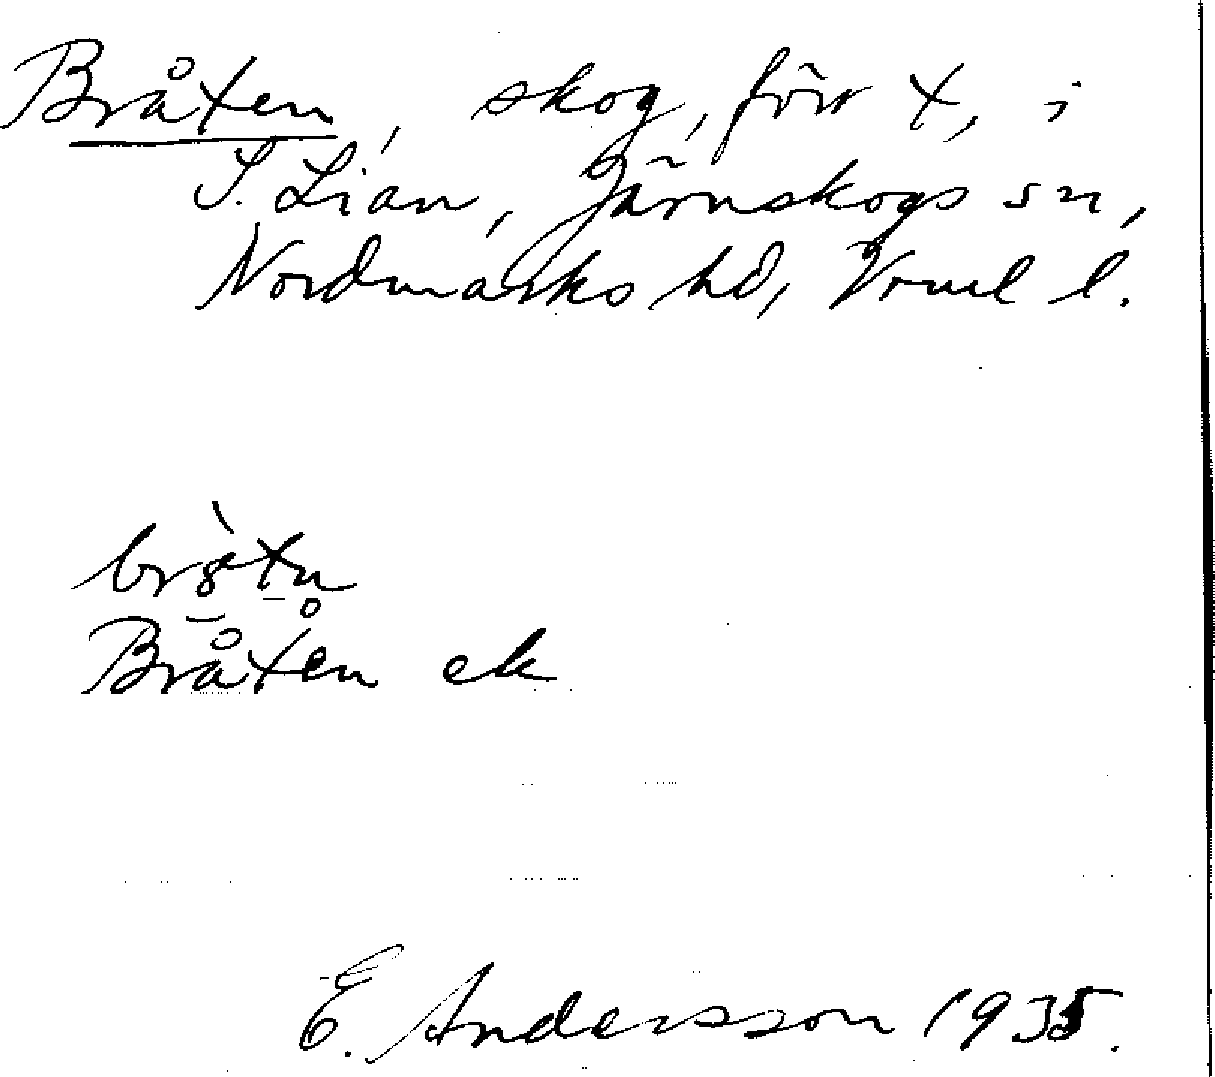 Bråten, skog, förr t, i
S. Lian, Järnskogs sn,
Nordmarks hd, Vrml l.
Bråten ek
E. Andersson 1935.